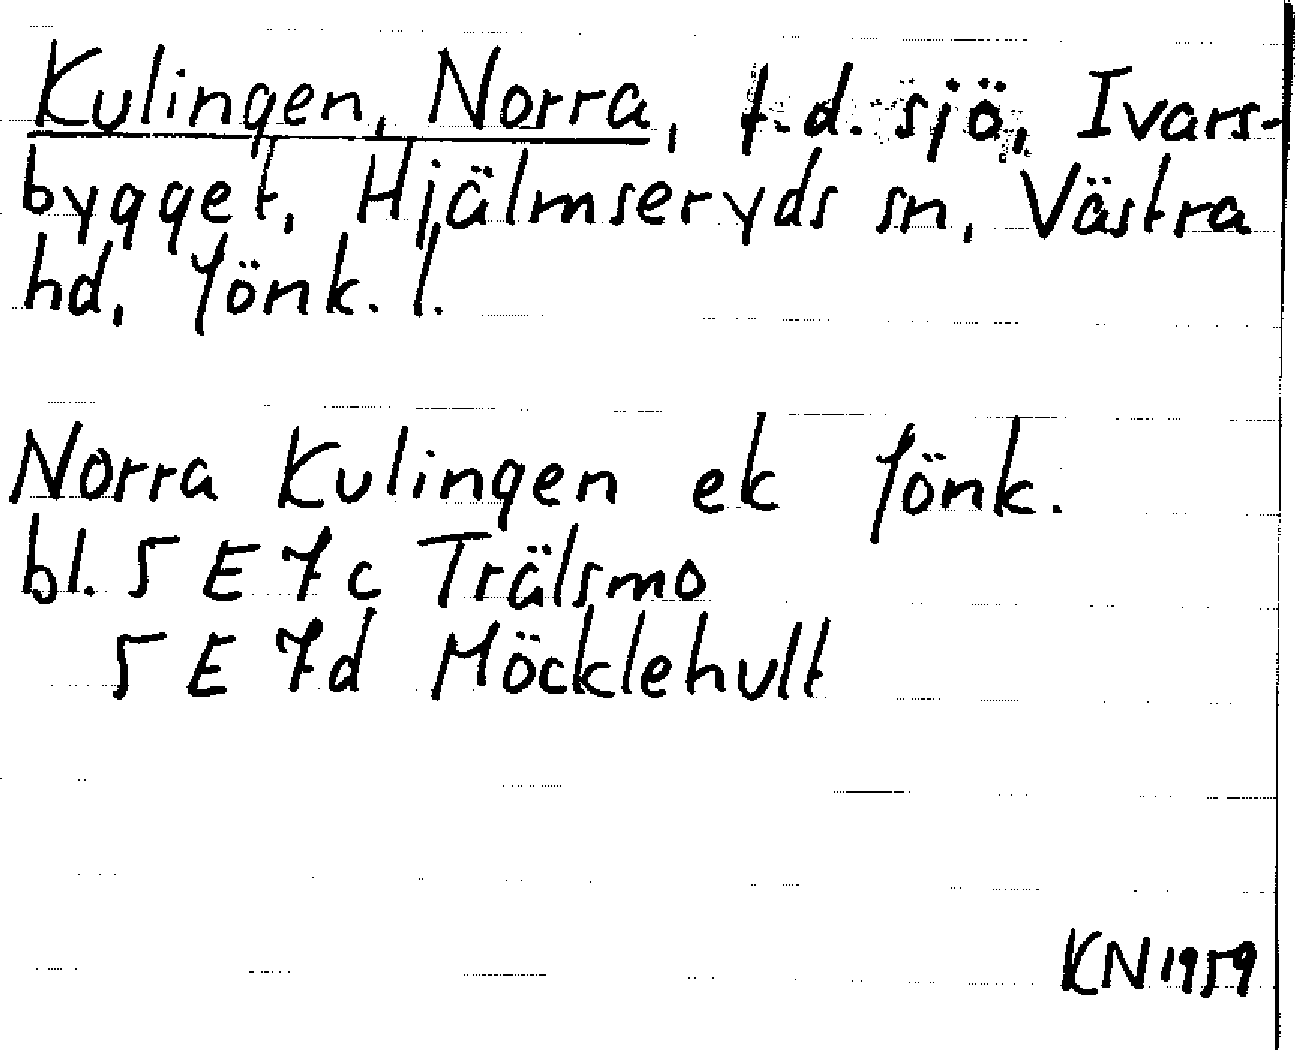 Kulingen, Norra, f.d. sjö, Ivars-
bygget, Hjälmseryds sn, Västra
hd, Jönk. l.
Norra Kulingen ek Jönk.
bl. 5 E 7 c Trälsmo
5 E 7d Möcklehult
KN 1959